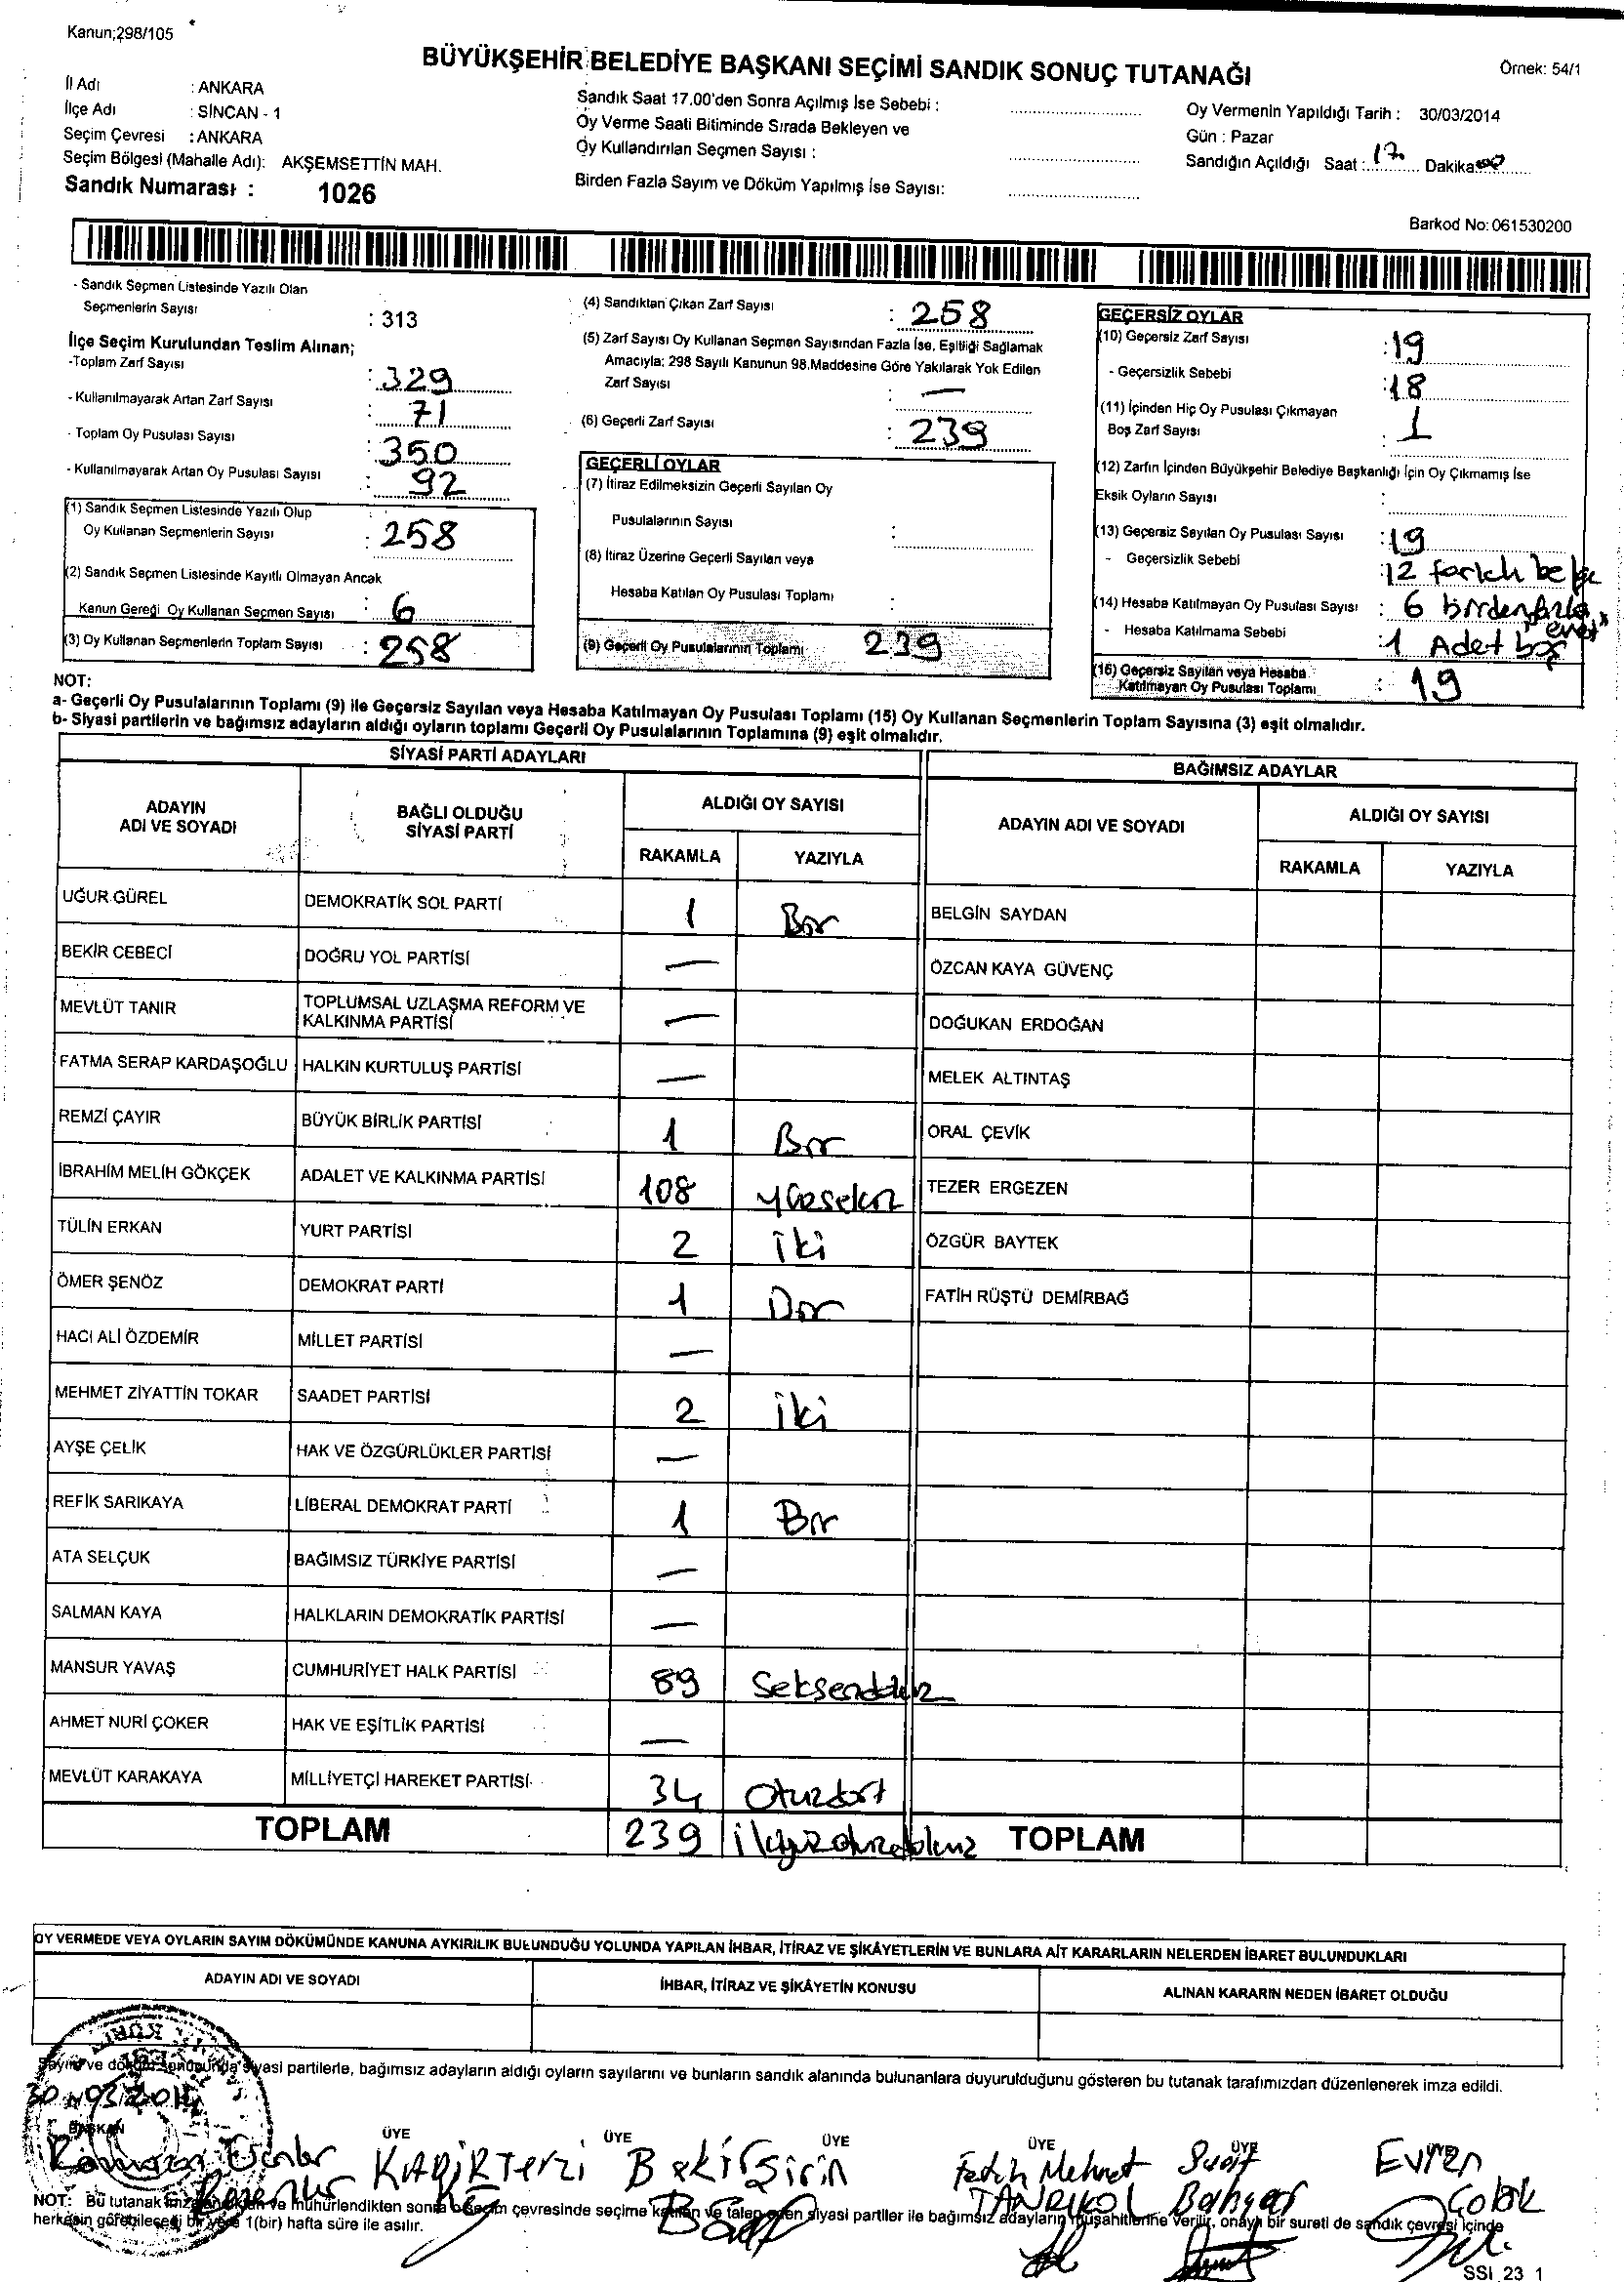 Kanun;298/105
BÜYÜKŞEHİR BELEDİYE BAŞKANI SEÇİMİ SANDIK SONUÇ TUTANAĞI
Örnek: 54/1
İl Adı : ANKARA
İlçe Adı : SİNCAN - 1
Seçim Çevresi : ANKARA
Seçim Bölgesi (Mahalle Adı): AKŞEMSETTİN MAH.
Sandık Numarası : 1026
Sandık Saat 17.00'den Sonra Açılmış İse Sebebi :
Oy Verme Saati Bitiminde Sırada Bekleyen ve
Oy Kullandırılan Seçmen Sayısı :
Birden Fazla Sayım ve Döküm Yapılmış İse Sayısı:
Oy Vermenin Yapıldığı Tarih : 30/03/2014
Gün : Pazar
Sandığın Açıldığı Saat : 17 Dakika 00
Barkod No: 061530200
- Sandık Seçmen Listesinde Yazılı Olan
Seçmenlerin Sayısı : 313
İlçe Seçim Kurulundan Teslim Alınan;
-Toplam Zarf Sayısı : 329
- Kullanılmayarak Artan Zarf Sayısı : 71
- Toplam Oy Pusulası Sayısı : 350
- Kullanılmayarak Artan Oy Pusulası Sayısı : 92
(1) Sandık Seçmen Listesinde Yazılı Olup
Oy Kullanan Seçmenlerin Sayısı : 258
(2) Sandık Seçmen Listesinde Kayıtlı Olmayan Ancak
Kanun Gereği Oy Kullanan Seçmen Sayısı : 6
(3) Oy Kullanan Seçmenlerin Toplam Sayısı : 258
(4) Sandıktan Çıkan Zarf Sayısı : 258
(5) Zarf Sayısı Oy Kullanan Seçmen Sayısından Fazla İse, Eşitliği Sağlamak
Amacıyla; 298 Sayılı Kanunun 98.Maddesine Göre Yakılarak Yok Edilen
Zarf Sayısı : —
(6) Geçerli Zarf Sayısı : 239
GEÇERLİ OYLAR
(7) İtiraz Edilmeksizin Geçerli Sayılan Oy
Pusulalarının Sayısı :
(8) İtiraz Üzerine Geçerli Sayılan veya
Hesaba Katılan Oy Pusulası Toplamı :
(9) Geçerli Oy Pusulalarının Toplamı 239
GEÇERSİZ OYLAR
(10) Geçersiz Zarf Sayısı : 19
- Geçersizlik Sebebi : 18
(11) İçinden Hiç Oy Pusulası Çıkmayan
Boş Zarf Sayısı : 1
(12) Zarfın İçinden Büyükşehir Belediye Başkanlığı İçin Oy Çıkmamış İse
Eksik Oyların Sayısı :
(13) Geçersiz Sayılan Oy Pusulası Sayısı : 19
- Geçersizlik Sebebi : 12 farklı belge
(14) Hesaba Katılmayan Oy Pusulası Sayısı : 6 birden fazla "evet"
- Hesaba Katılmama Sebebi : 1 Adet boş
(15) Geçersiz Sayılan veya Hesaba
Katılmayan Oy Pusulası Toplamı : 19
NOT:
a- Geçerli Oy Pusulalarının Toplamı (9) ile Geçersiz Sayılan veya Hesaba Katılmayan Oy Pusulası Toplamı (15) Oy Kullanan Seçmenlerin Toplam Sayısına (3) eşit olmalıdır.
b- Siyasi partilerin ve bağımsız adayların aldığı oyların toplamı Geçerli Oy Pusulalarının Toplamına (9) eşit olmalıdır.
SİYASİ PARTİ ADAYLARI
ADAYIN ADI VE SOYADI
BAĞLI OLDUĞU SİYASİ PARTİ
ALDIĞI OY SAYISI
RAKAMLA YAZIYLA
UĞUR GÜREL DEMOKRATİK SOL PARTİ 1 Bir
BEKİR CEBECİ DOĞRU YOL PARTİSİ —
MEVLÜT TANIR TOPLUMSAL UZLAŞMA REFORM VE KALKINMA PARTİSİ —
FATMA SERAP KARDAŞOĞLU HALKIN KURTULUŞ PARTİSİ —
REMZİ ÇAYIR BÜYÜK BİRLİK PARTİSİ 1 Bir
İBRAHİM MELİH GÖKÇEK ADALET VE KALKINMA PARTİSİ 108 yüzsekiz
TÜLİN ERKAN YURT PARTİSİ 2 iki
ÖMER ŞENÖZ DEMOKRAT PARTİ 1 Bir
HACI ALİ ÖZDEMİR MİLLET PARTİSİ —
MEHMET ZİYATTİN TOKAR SAADET PARTİSİ 2 iki
AYŞE ÇELİK HAK VE ÖZGÜRLÜKLER PARTİSİ —
REFİK SARIKAYA LİBERAL DEMOKRAT PARTİ 1 Bir
ATA SELÇUK BAĞIMSIZ TÜRKİYE PARTİSİ —
SALMAN KAYA HALKLARIN DEMOKRATİK PARTİSİ —
MANSUR YAVAŞ CUMHURİYET HALK PARTİSİ 89 Seksendokuz
AHMET NURİ ÇOKER HAK VE EŞİTLİK PARTİSİ —
MEVLÜT KARAKAYA MİLLİYETÇİ HAREKET PARTİSİ 34 Otuzdört
TOPLAM 239 ikiyüzotuzdokuz
BAĞIMSIZ ADAYLAR
ADAYIN ADI VE SOYADI
ALDIĞI OY SAYISI
RAKAMLA YAZIYLA
BELGİN SAYDAN
ÖZCAN KAYA GÜVENÇ
DOĞUKAN ERDOĞAN
MELEK ALTINTAŞ
ORAL ÇEVİK
TEZER ERGEZEN
ÖZGÜR BAYTEK
FATİH RÜŞTÜ DEMİRBAĞ
TOPLAM
OY VERMEDE VEYA OYLARIN SAYIM DÖKÜMÜNDE KANUNA AYKIRILIK BULUNDUĞU YOLUNDA YAPILAN İHBAR, İTİRAZ VE ŞİKÂYETLERİN VE BUNLARA AİT KARARLARIN NELERDEN İBARET BULUNDUKLARI
ADAYIN ADI VE SOYADI İHBAR, İTİRAZ VE ŞİKÂYETİN KONUSU ALINAN KARARIN NEDEN İBARET OLDUĞU
Sayım ve döküm sonucunda siyasi partilerle, bağımsız adayların aldığı oyların sayılarını ve bunların sandık alanında bulunanlara duyurulduğunu gösteren bu tutanak tarafımızdan düzenlenerek imza edildi.
30/03/2014
BAŞKAN ÜYE ÜYE ÜYE ÜYE ÜYE ÜYE
Ramazan KADİR Terzi Bekir Şirin Fatih Mehmet TANRIKOL Suat Evren Çolak
NOT: Bu tutanak imzalandıktan ve mühürlendikten sonra o seçim çevresinde seçime katılan ve talep eden siyasi partiler ile bağımsız adayların müşahitlerine verilir, onaylı bir sureti de sandık çevresi içinde
herkesin görebileceği bir yere 1(bir) hafta süre ile asılır.
SSI 23 1